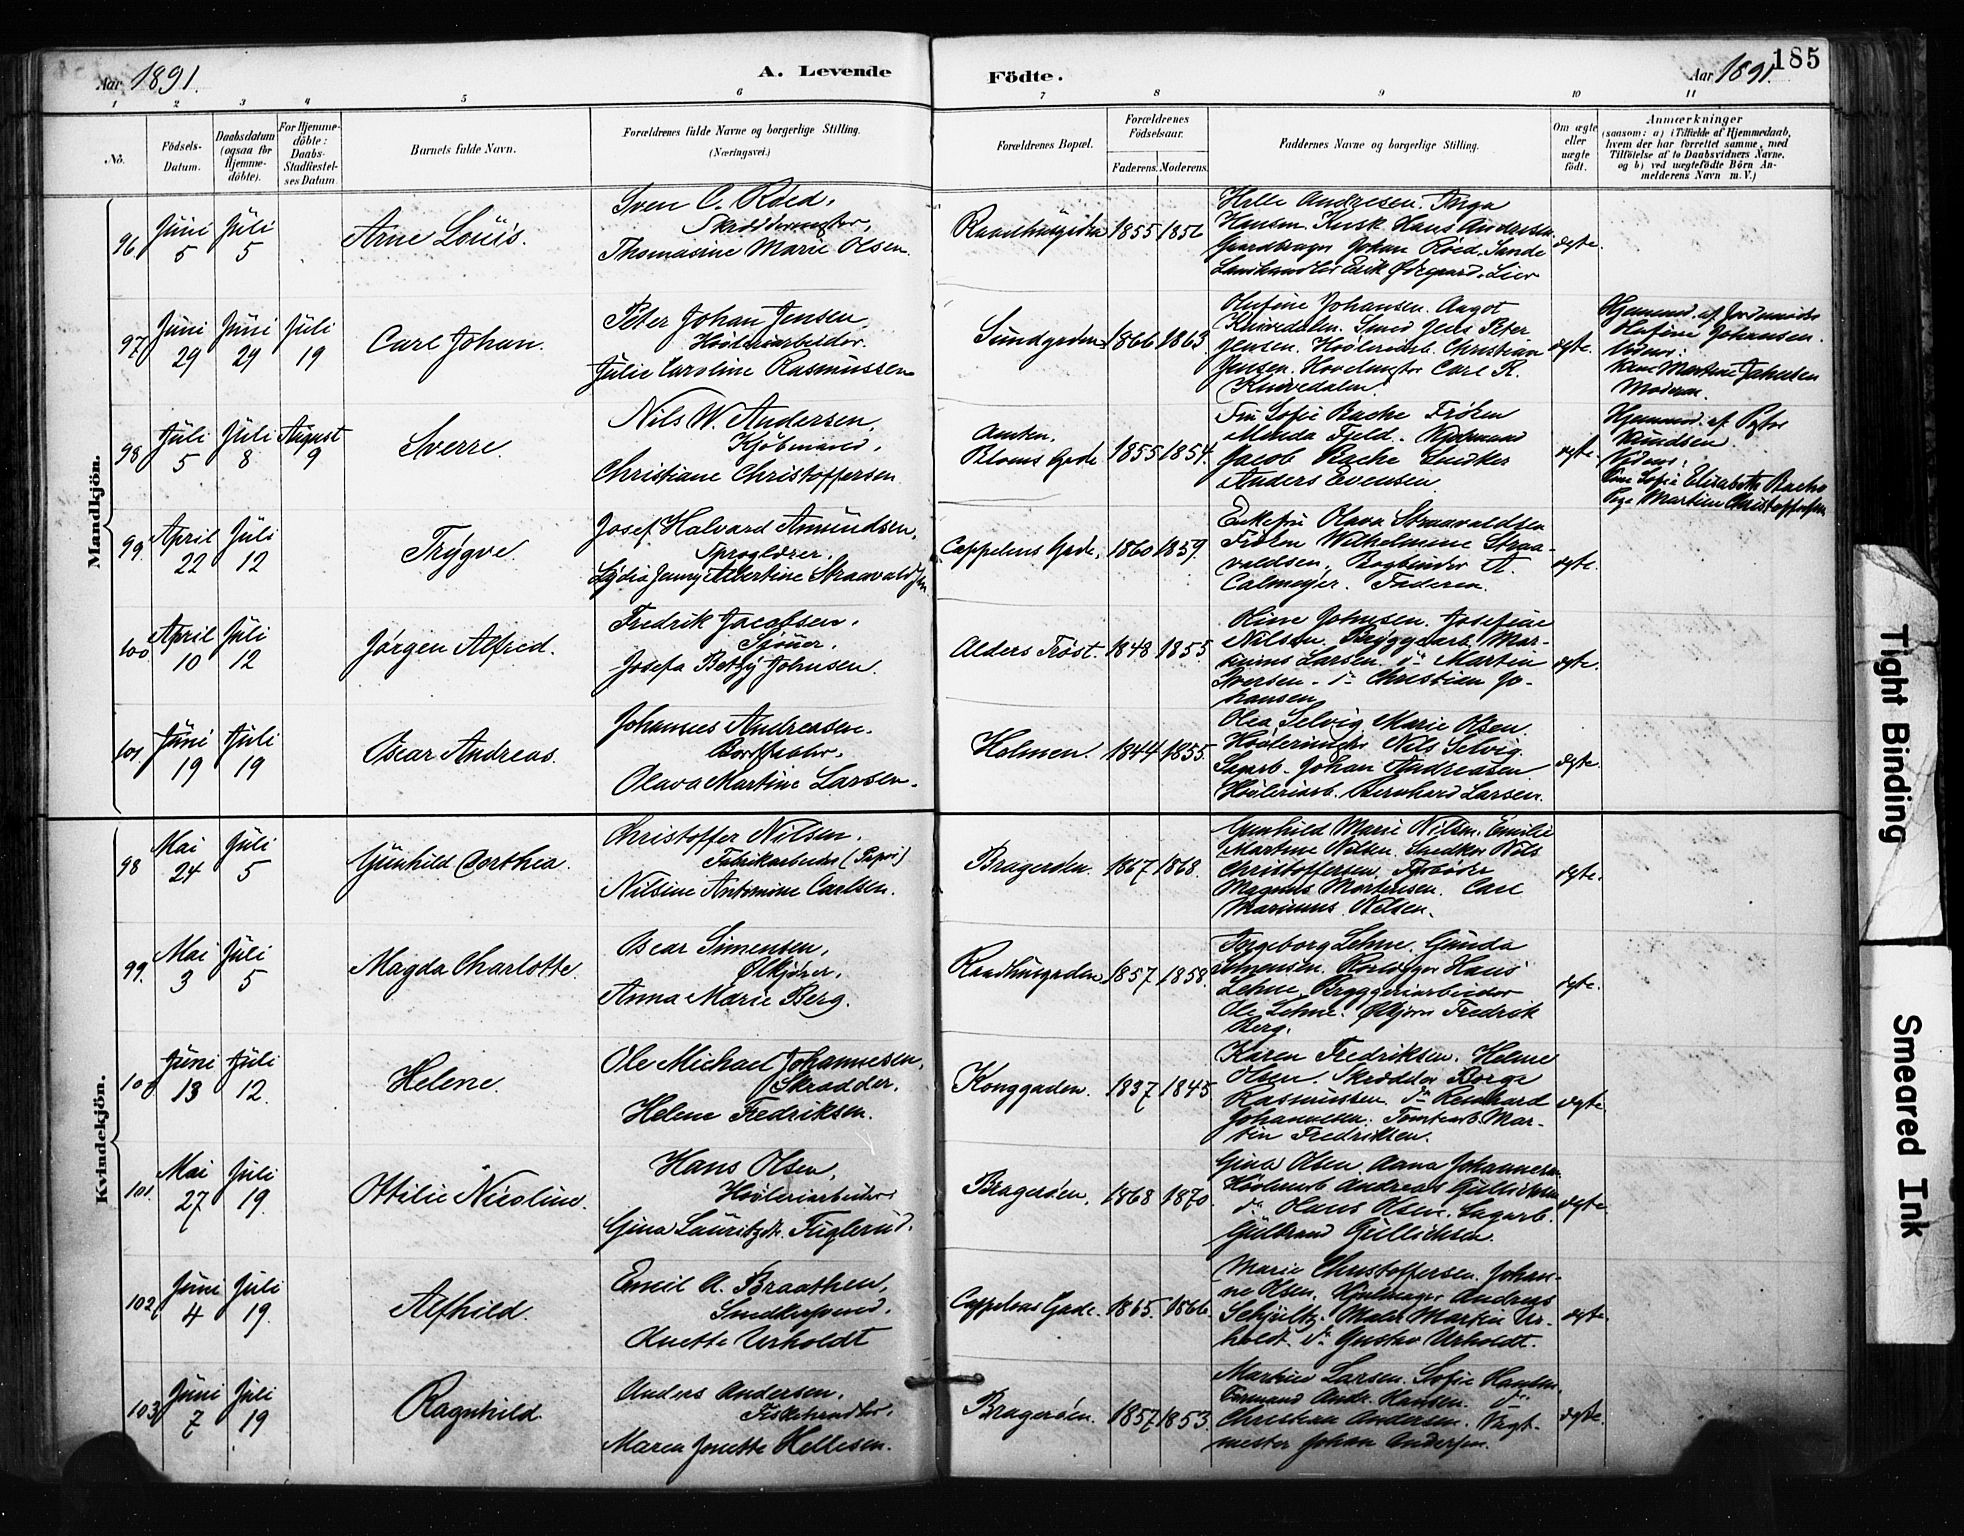 Aar 1891. A. Levende Födte. Aar 1891. 185
1 2 3 4 5 6 7 8 9 10 11
No.
Födsels-Datum.
Daabsdatum (ogsaa for Hjemme-döbte).
For Hjemme-döbte: Daabs-Stadfæstel-ses Datum
Barnets fulde Navn.
Forældrenes fulde Navne og borgerlige Stilling.
(Næringsvei.)
Forældrenes Bopæl.
Forældrenes Födselsaar.
Faderens. Moderens.
Faddernes Navne og borgerlige Stilling.
Om ægte eller uægte födt.
Anmærkninger
(saasom: a) i Tilfælde af Hjemmedaab,
hvem der har forrettet samme, med
Tilföielse af to Daabsvidners Navne,
og b) ved uægtefödte Börn An-
melderens Navn m. V.)
Mandkjön.
96. Juni 5 Juli 5
Arne Louis.
Sven C. Röed,
Skræddermester,
Thomasine Marie Olsen.
1855 1856
Helle Andresen. Inga
Hansen. Kusk Hans Andersen
Gaardbruger Johan Röed, Sande
Landhandler Erik Ødegaard, Lier
ægte.
97 Juni 29 Juni 29 Juli 19
Carl Johan.
Peter Johan Jensen,
Høvleriarbeider.
Julie Caroline Rasmussen
Sundgaden 1866 1863
Olufine Johansen. Aagot
Knivedalen. Smed Jens Peter
Jensen. Høvleriarb. Christian
Jensen. Høvelmester Carl K.
Knivedalen.
ægte.
Hjemmed. af Jordemoder
Olufine Johansen.
Vidner:
Martine Johansen
Moderen.
98 Juli 5 Juli 8 August 9
Sverre.
Nils W. Andersen,
Kjøbmand,
Christiane Christoffersen
Bloms Gade 1855 1854.
Fru Sofie Bache Frøken
Minda Fjeld. Kjøbmand
Jacob Bache Snedker
Anders Evensen
ægte.
Hjemmed. af
Knudsen
Vidner:
Fru Sofie Elisabeth Bache
Martine Christoffersen
99. April 22 Juli 12
Trygve.
Josef Halvard Amundsen,
Sproglærer.
Lydia Jenny Albertine Straavaldsen
Cappelens Gade, 1860 1859.
Enkefru Olava Straavaldsen
Frøken Wilhelmine Straa-
valdsen, Bogbinder A.
Calmeyer. Faderen.
ægte.
100 April 10 Juli 12
Jørgen Alfred.
Fredrik Jacobsen,
Sjömand.
Josefa Betzy Johnsen.
Alders Trøst. 1848 1855.
Johnsen. Josefine
Nilsen. Bryggearb. Mar-
Larsen do Martin
Iversen - do Christian Jo-
hansen
ægte.
101 Juni 19 Juli 19
Oscar Andreas.
Johannes Andreasen.
Olava Martine Larsen.
Holmen. 1844 1855.
Olea Selvig Marie Olsen.
Høvlerimester Nils Selvig.
Sagarb. Johan Andreasen
Høvleriarb. Bernhard Larsen.
ægte.
Kvindekjön.
98 Mai 24 Juli 5
Gunhild Dorthea.
Christoffer Nilsen,
Fabrikarbeider (Papir)
Nilsine Antonine Carlsen.
Bragerøen. 1867 1868.
Gunhild Marie Nilsen. Emilie
Martine Nilsen. Snedker Nils
Christoffersen. Fyrbøder
Magnus Mortensen. Carl
Marinius Nilsen.
ægte.
99. Mai 3 Juli 5
Magda Charlotte.
Oscar Simensen,
Ølkjører,
Anna Marie Berg.
Raadhusgaden 1857 1858.
Ingeborg Lehne. Gunda
Simensen. Hans
Lehne. Bryggeriarbeider
Ole Lehne. Ølkjører Fredrik
Berg.
ægte.
100 Juni 13 Juli 12.
Helene.
Ole Michael Johannesen,
Skrædder,
Helene Fredriksen.
Konggaden. 1837 1845
Karen Fredriksen. Helene
Olsen. Skrædder Børge
Rasmussen. do Reinhard
Johannesen. Tomtearb. Mar-
tin Fredriksen.
ægte
101. Mai 27 Juli 19.
Ottilie Nicoline.
Hans Olsen,
Høvleriarbeider
Gina Lauritzdr. Fuglerud.
Bragerøen. 1868 1870.
Gina Olsen. Anna Johannesen
Høvleriarb Andreas Gulliksen
do Hans Olsen. Sagarb.
Gulbrand Gullichsen.
ægte.
102 Juni 4 Juli 19.
Alfhild.
Emil A. Braathen,
Snedkersvend.
Anette Urholdt
Cappelens Gade. 1865. 1866.
Marie Christoffersen. Johan-
ne Olsen. Andreas
Schjultz. Maler Martin Ur-
holdt. do Gustav Urholdt.
ægte.
103 Juni 7 Juli 19
Ragnhild.
Anders Andersen.
Fiskehandler.
Maren Jonette Hellesen.
Bragerøen. 1857 1853.
Martine Larsen. Sofie Hansen.
Formand Andr. Hansen. do
Christian Andersen. Vagt-
mester Johan Andersen.
ægte.
Tight Binding
Smeared Ink